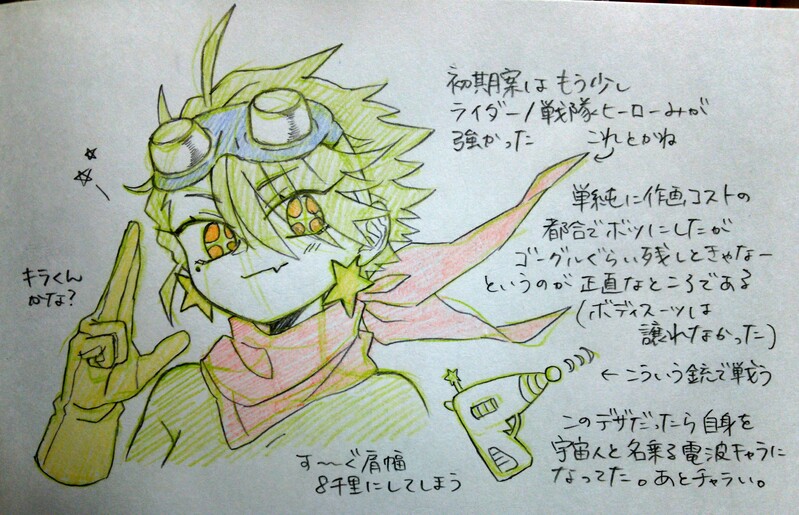 初期案はもう少し
ライダー/戦隊ヒーローみが
強かった これとかね
単純に作画コストの
都合でボツにしたが
ゴーグルぐらい残しときゃなー
というのが正直なところである
(ボディスーツは
譲れなかった)
キラくん
かな?
←こういう銃で戦う
このデザだったら自身を
宇宙人と名乗る電波キャラに
なってた。あとチャラい。
す〜ぐ肩幅
8千里にしてしまう